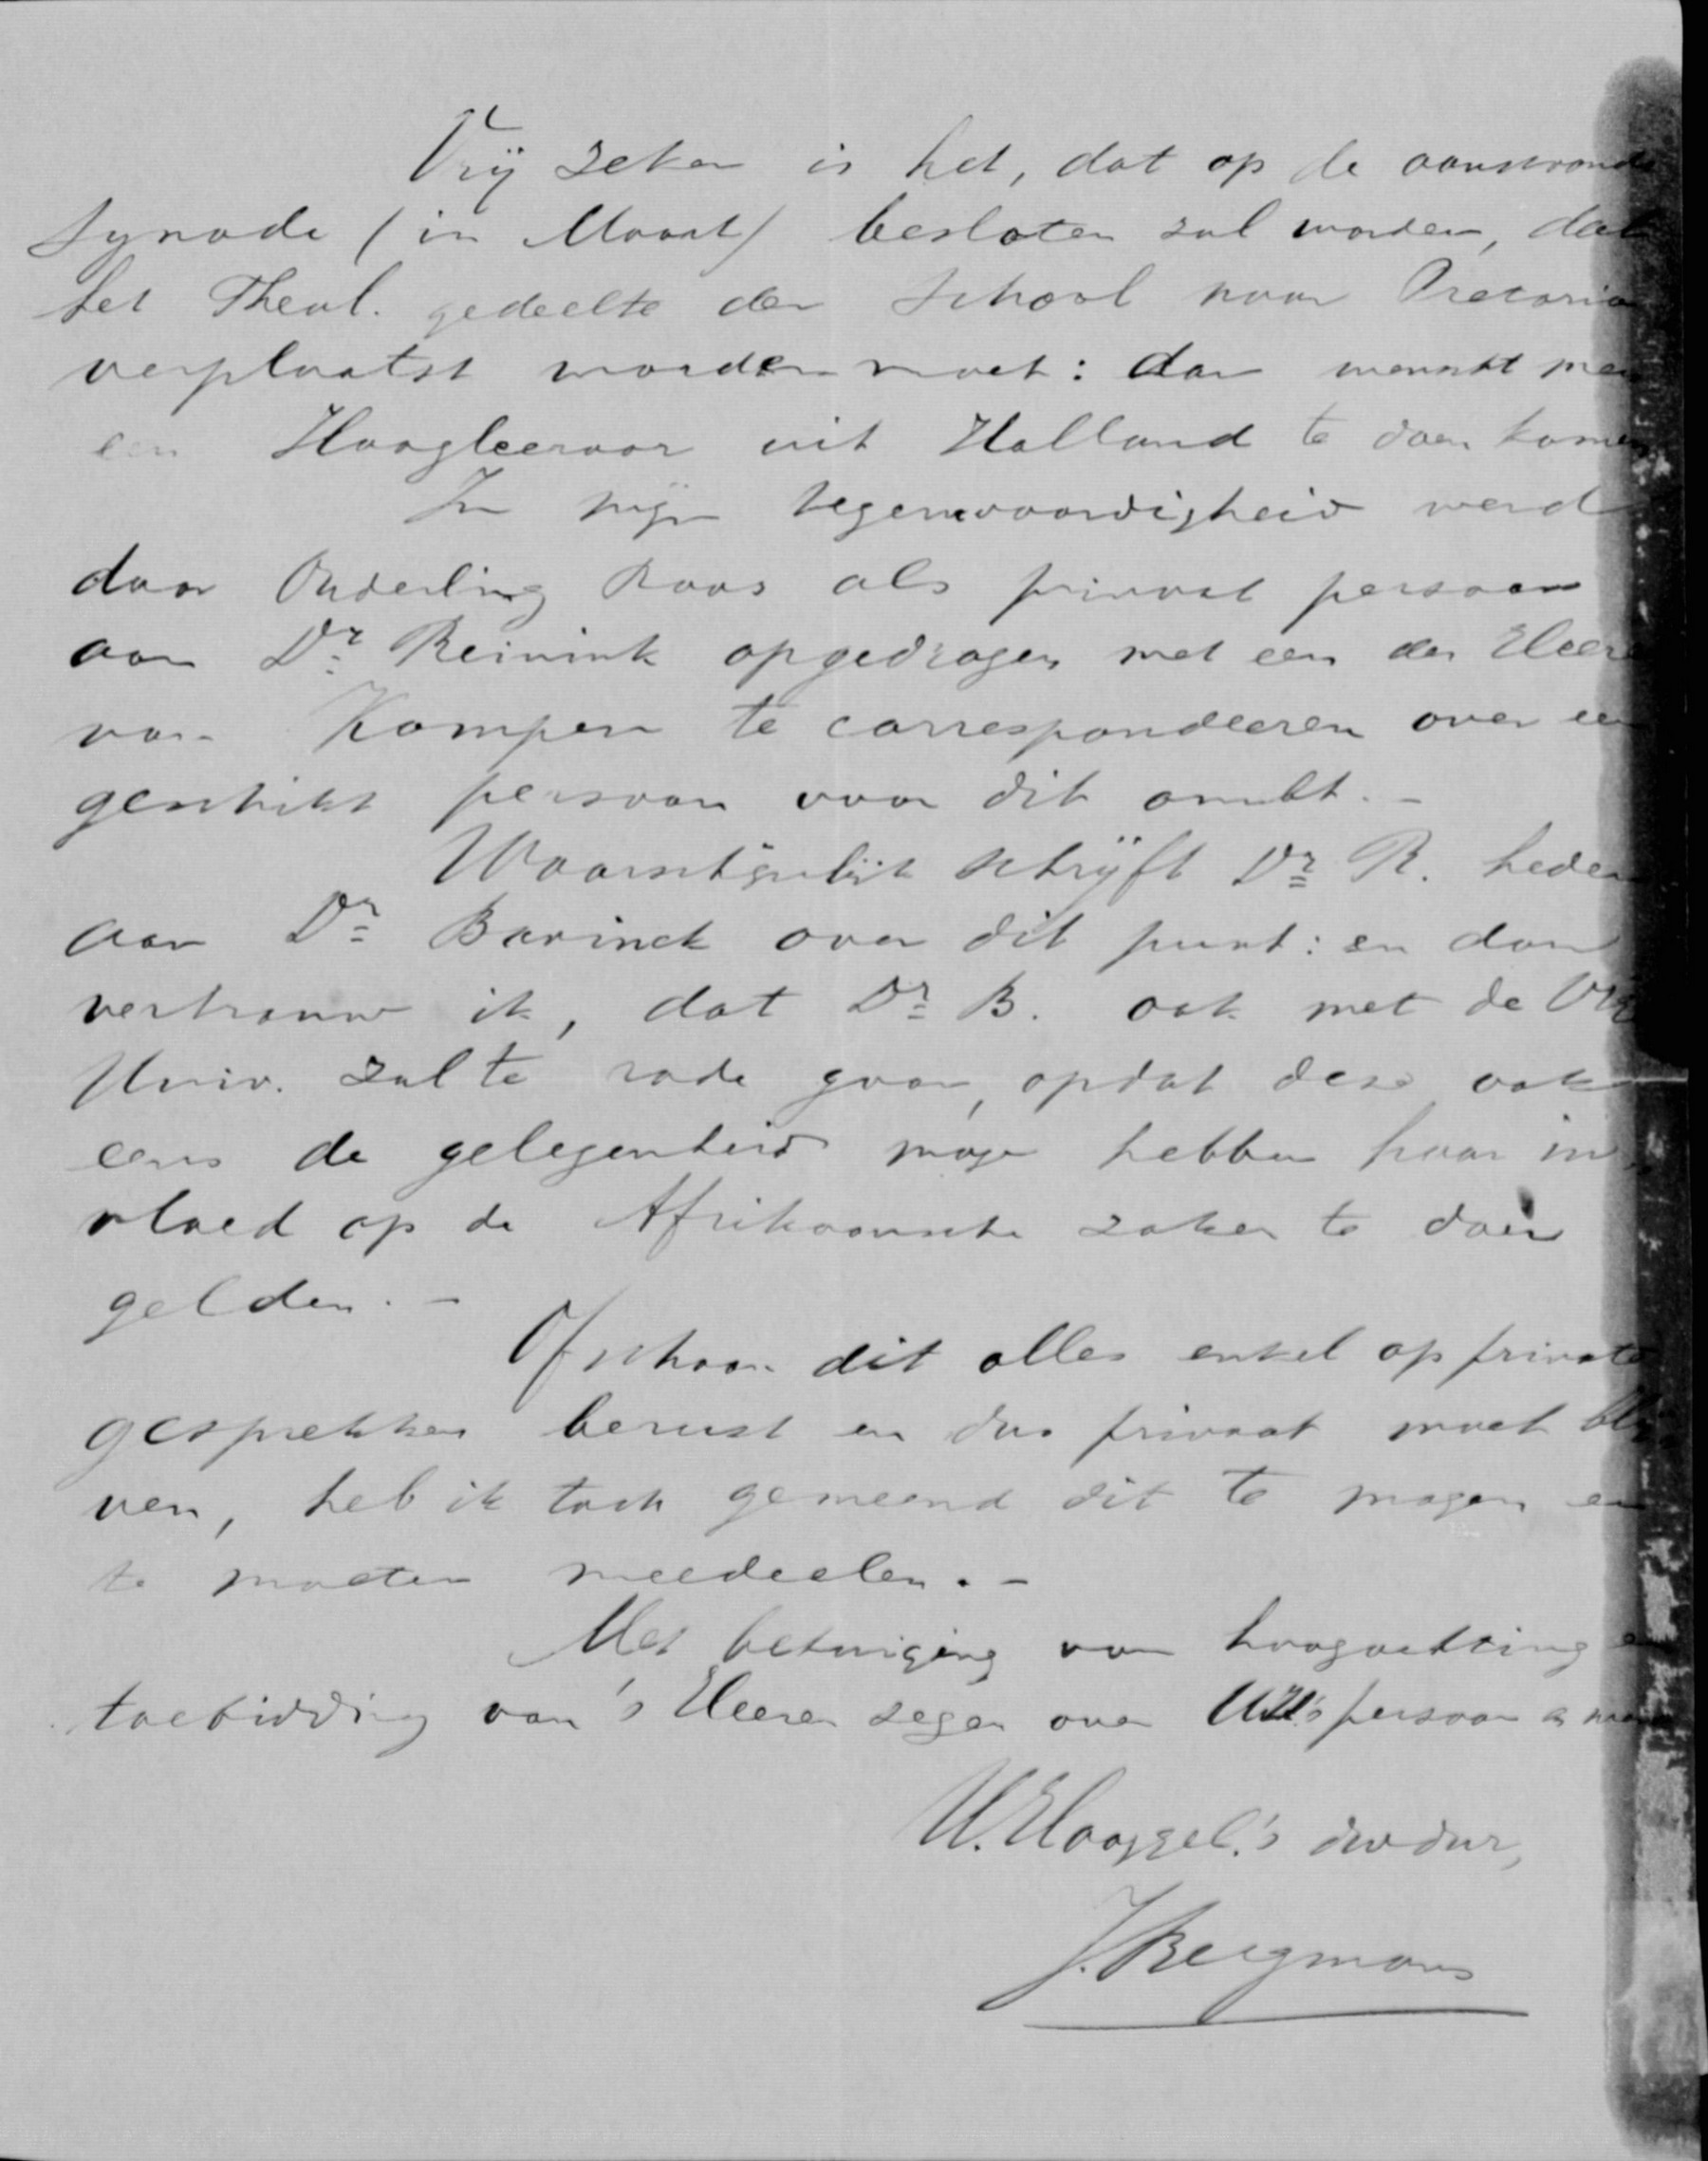 Vrij zeker is het, dat op de aanstaande
Synode (in Maart) besloten zal worden, dat
het Theol. gedeelte der School naar Pretoria
verplaatst worden moet: dan wenscht men
een Hoogleeraar uit Holland te doen komen
In mijn tegenwoordigheid werd
door Ouderling Roos als privaat persoon
aan Dr. Reinink opgedragen met een der Heeren
van Kampen te correspondeeren over een
geschikt persoon voor dit ambt. -
Waarschijnlijk schrijft Dr. R. heden
aan Dr. Bavinck over dit punt: en dan
vertrouw ik, dat Dr. B. ook met de Vrije
Univ. zal te rade gaan, opdat deze ook
eens de gelegenheid moge hebben haar in-
vloed op de Afrikaansche zaken te doen
gelden. -
Ofschoon dit alles enkel op private
gesprekken berust en dus privaat moet blij-
ven, heb ik toch gemeend dit te mogen en
te moeten meedeelen. -
Met betuiging van hoogachting en
toebidding van 's Heeren zegen over persoon
U. Hooggel.'s dwdnr,
J. Bergmans